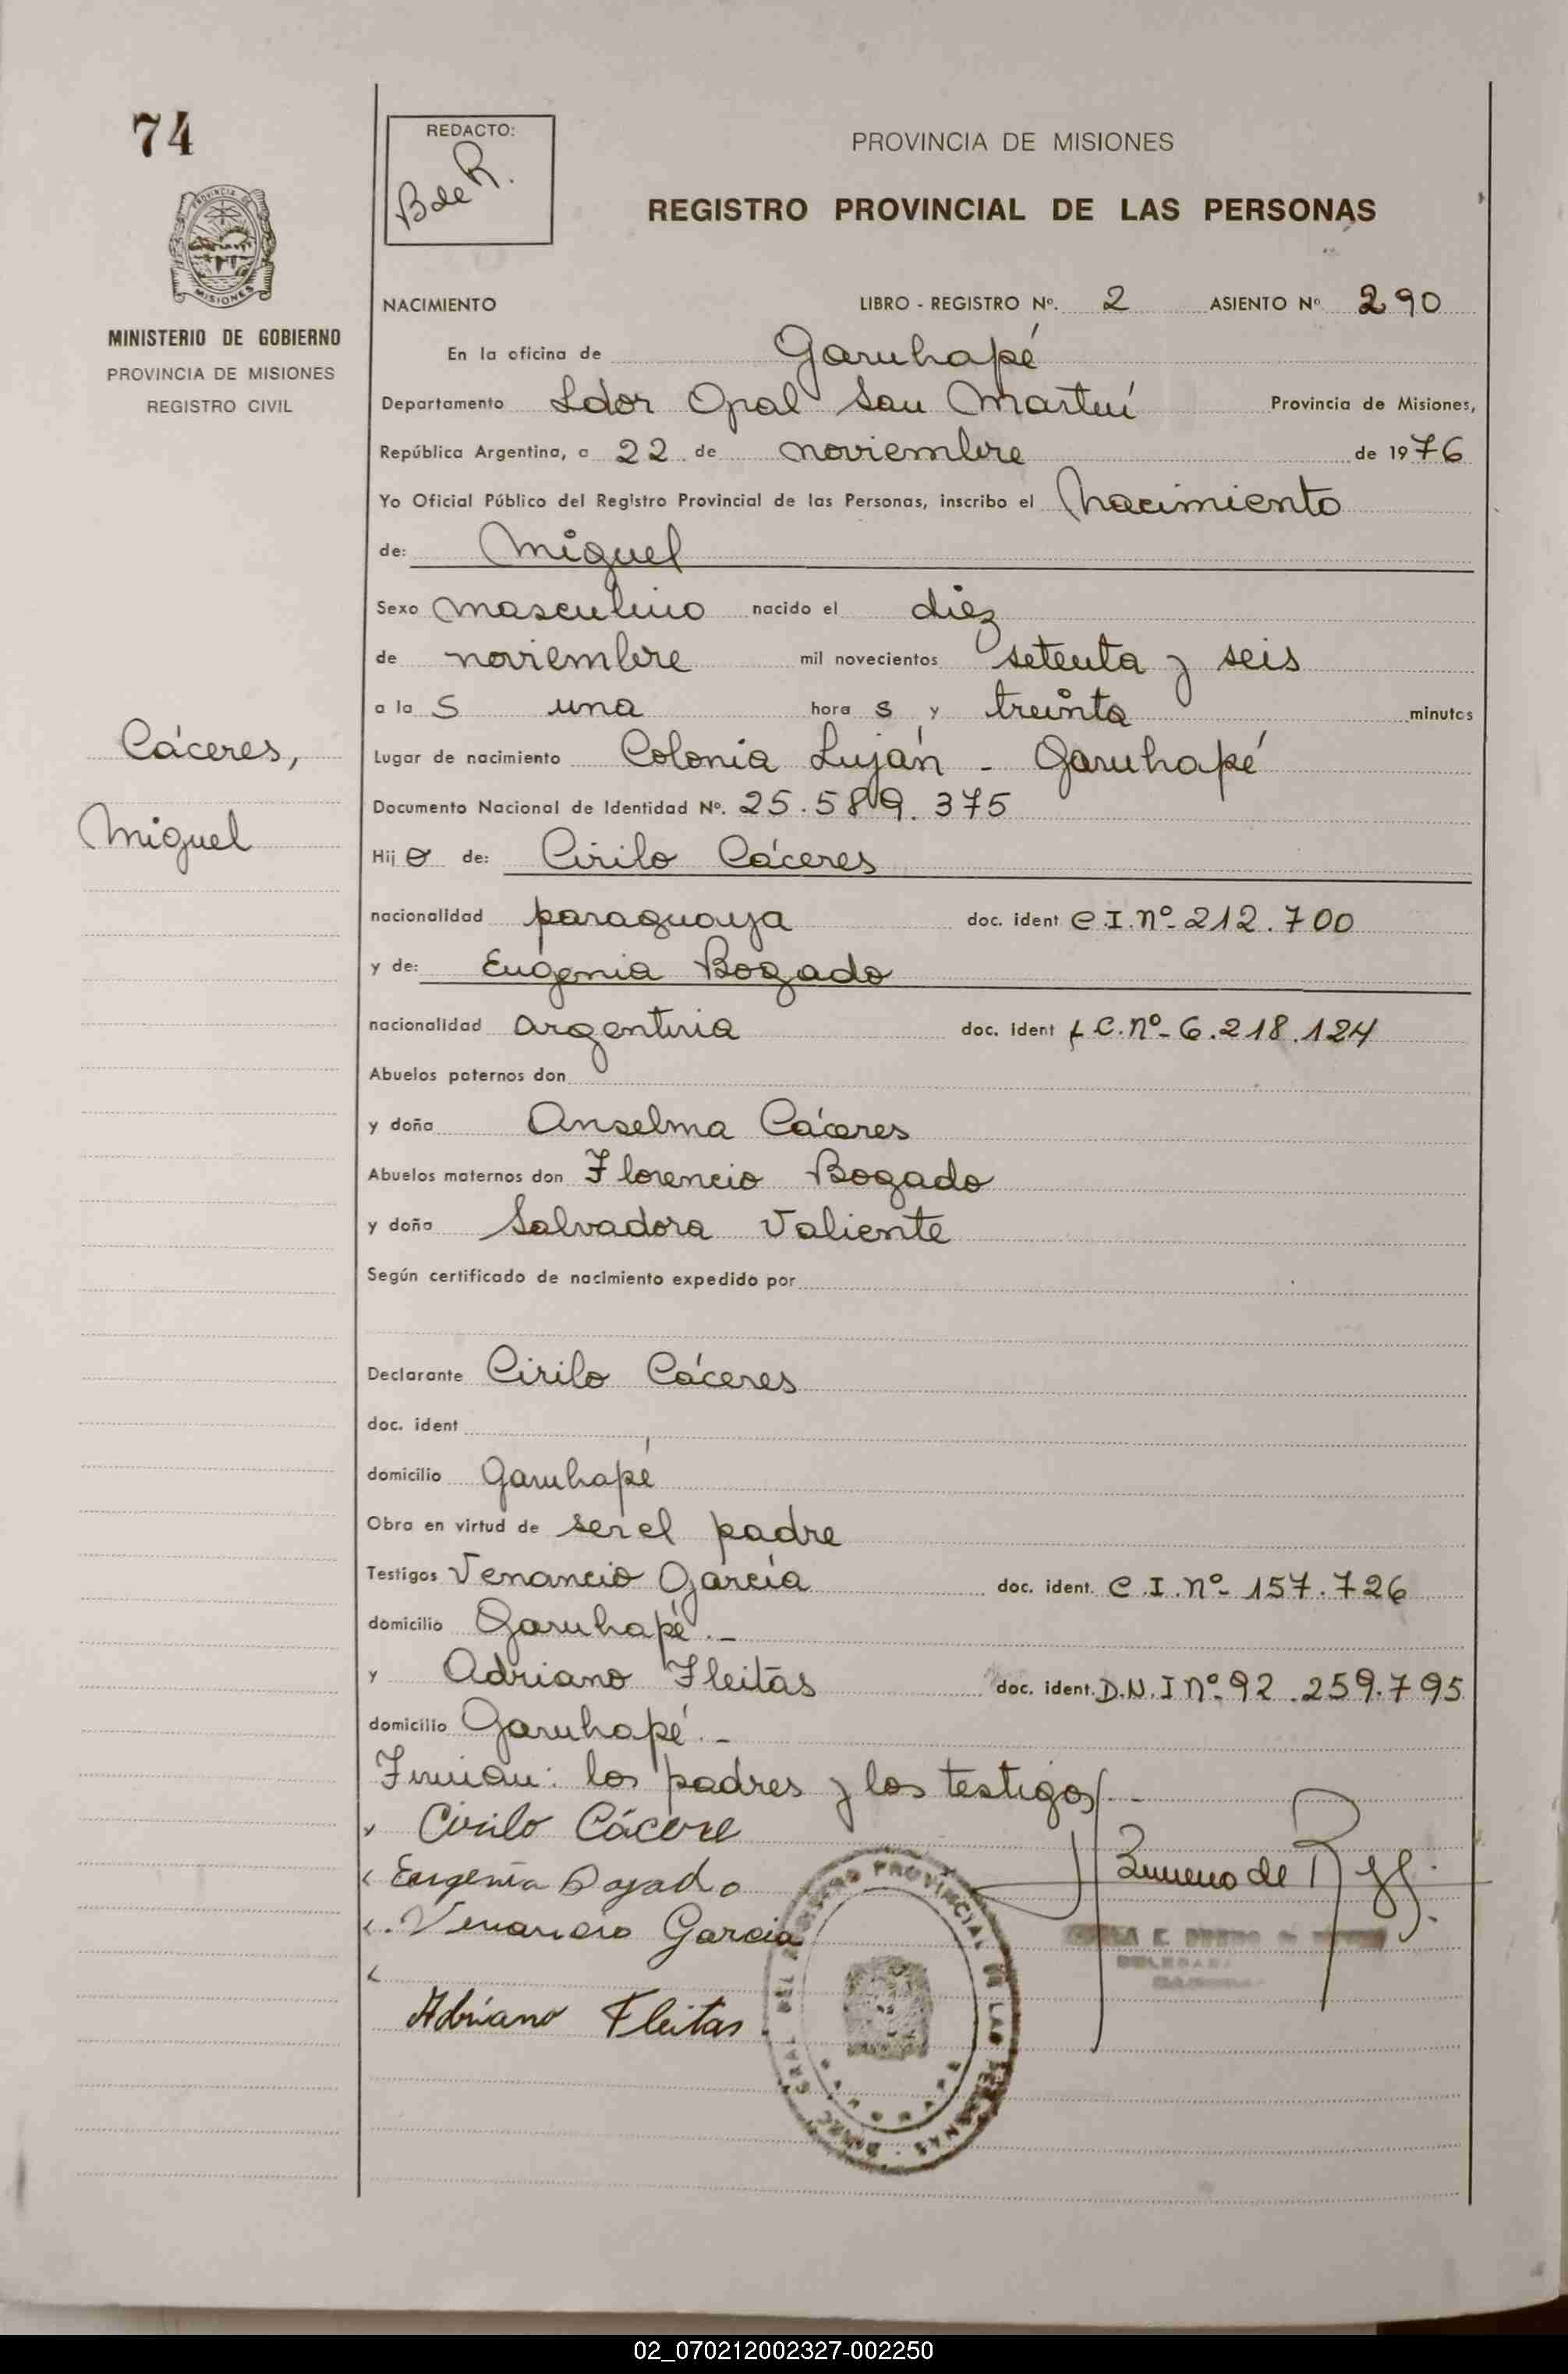 74
REDACTO:
B de R.
PROVINCIA DE MISIONES
REGISTRO PROVINCIAL DE LAS PERSONAS
MISIONES
MINISTERIO DE GOBIERNO
PROVINCIA DE MISIONES
REGISTRO CIVIL
NACIMIENTO LIBRO - REGISTRO Nº. 2 ASIENTO Nº 290
En la oficina de Garuhapé
Departamento Ldor Gral San Martín Provincia de Misiones,
República Argentina, a 22 de noviembre de 1976
Yo Oficial Público del Registro Provincial de las Personas, inscribo el Nacimiento
de: Miguel
Sexo masculino nacido el diez
de noviembre mil novecientos setenta y seis
a la s una hora s y treinta minutos
Cáceres,
Miguel
Lugar de nacimiento Colonia Luján - Garuhapé
Documento Nacional de Identidad Nº. 25.589.375
Hij o de: Cirilo Cáceres
nacionalidad paraguaya doc. ident C.I.nº- 212.700
y de: Eugenia Bogado
nacionalidad argentina doc. ident L.C.nº- 6.218.124
Abuelos paternos don
y doña Anselma Cáceres
Abuelos maternos don Florencio Bogado
y doña Salvadora Valiente
Según certificado de nacimiento expedido por
Declarante Cirilo Cáceres
doc. ident
domicilio Garuhapé
Obra en virtud de ser el padre
Testigos Venancio García doc. ident. C.I.nº- 157.726
domicilio Garuhapé.-
y Adriano Fleitas doc. ident. D.N.I nº-92.259.795
domicilio Garuhapé.-
Firman: los padres y los testigos.-
Cirilo Cácere
Eugenia Bogado
Venancio Garcia
Adriano Fleitas
REGISTRO PROVINCIAL DE LAS PERSONAS
02_070212002327-002250